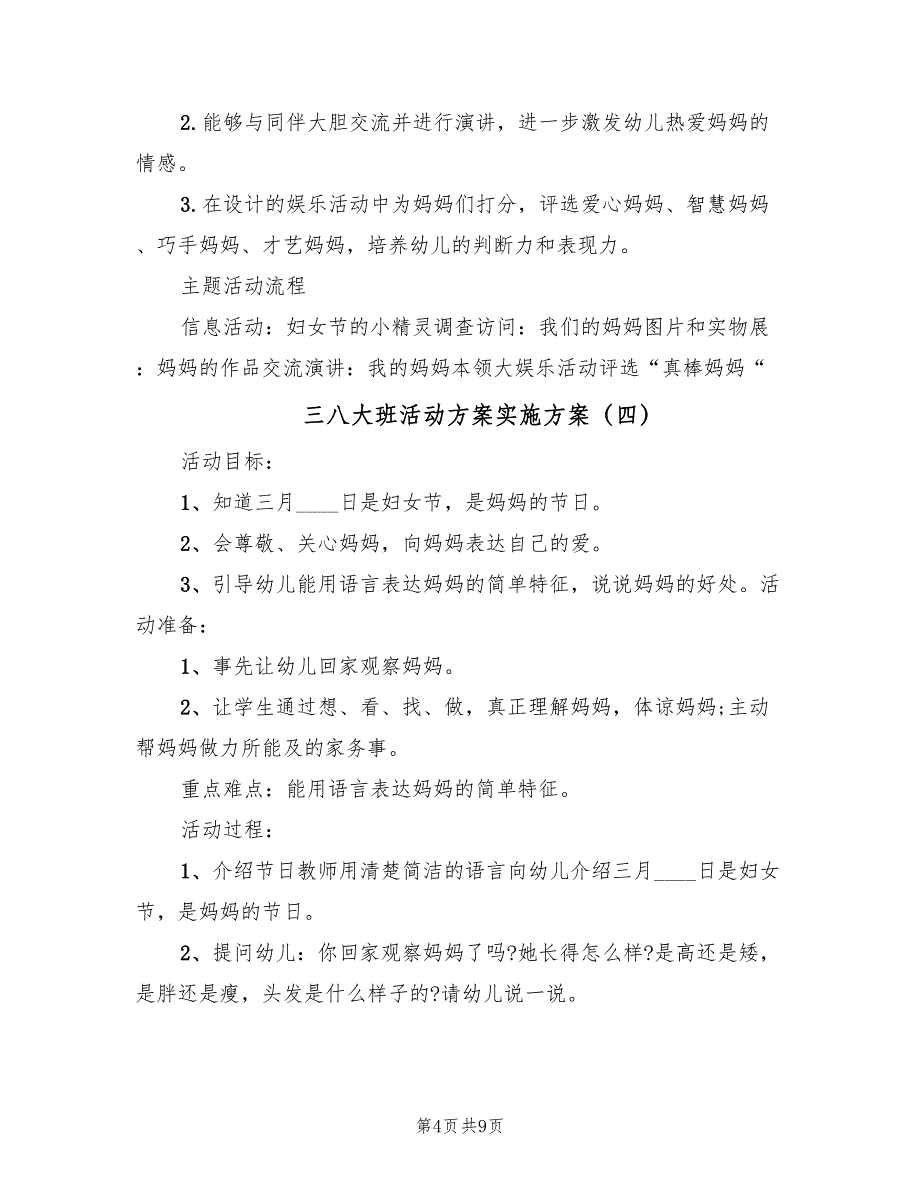 2.能够与同伴大胆交流并进行演讲，进一步激发幼儿热爱妈妈的
情感。
3.在设计的娱乐活动中为妈妈们打分，评选爱心妈妈、智慧妈妈
、巧手妈妈、才艺妈妈，培养幼儿的判断力和表现力。
主题活动流程
信息活动：妇女节的小精灵调查访问：我们的妈妈图片和实物展
：妈妈的作品交流演讲：我的妈妈本领大娱乐活动评选“真棒妈妈“
三八大班活动方案实施方案（四）
活动目标：
1、知道三月____日是妇女节，是妈妈的节日。
2、会尊敬、关心妈妈，向妈妈表达自己的爱。
3、引导幼儿能用语言表达妈妈的简单特征，说说妈妈的好处。活
动准备：
1、事先让幼儿回家观察妈妈。
2、让学生通过想、看、找、做，真正理解妈妈，体谅妈妈;主动
帮妈妈做力所能及的家务事。
重点难点：能用语言表达妈妈的简单特征。
活动过程：
1、介绍节日教师用清楚简洁的语言向幼儿介绍三月____日是妇女
节，是妈妈的节日。
2、提问幼儿：你回家观察妈妈了吗?她长得怎么样?是高还是矮，
是胖还是瘦，头发是什么样子的?请幼儿说一说。
第4页共9页